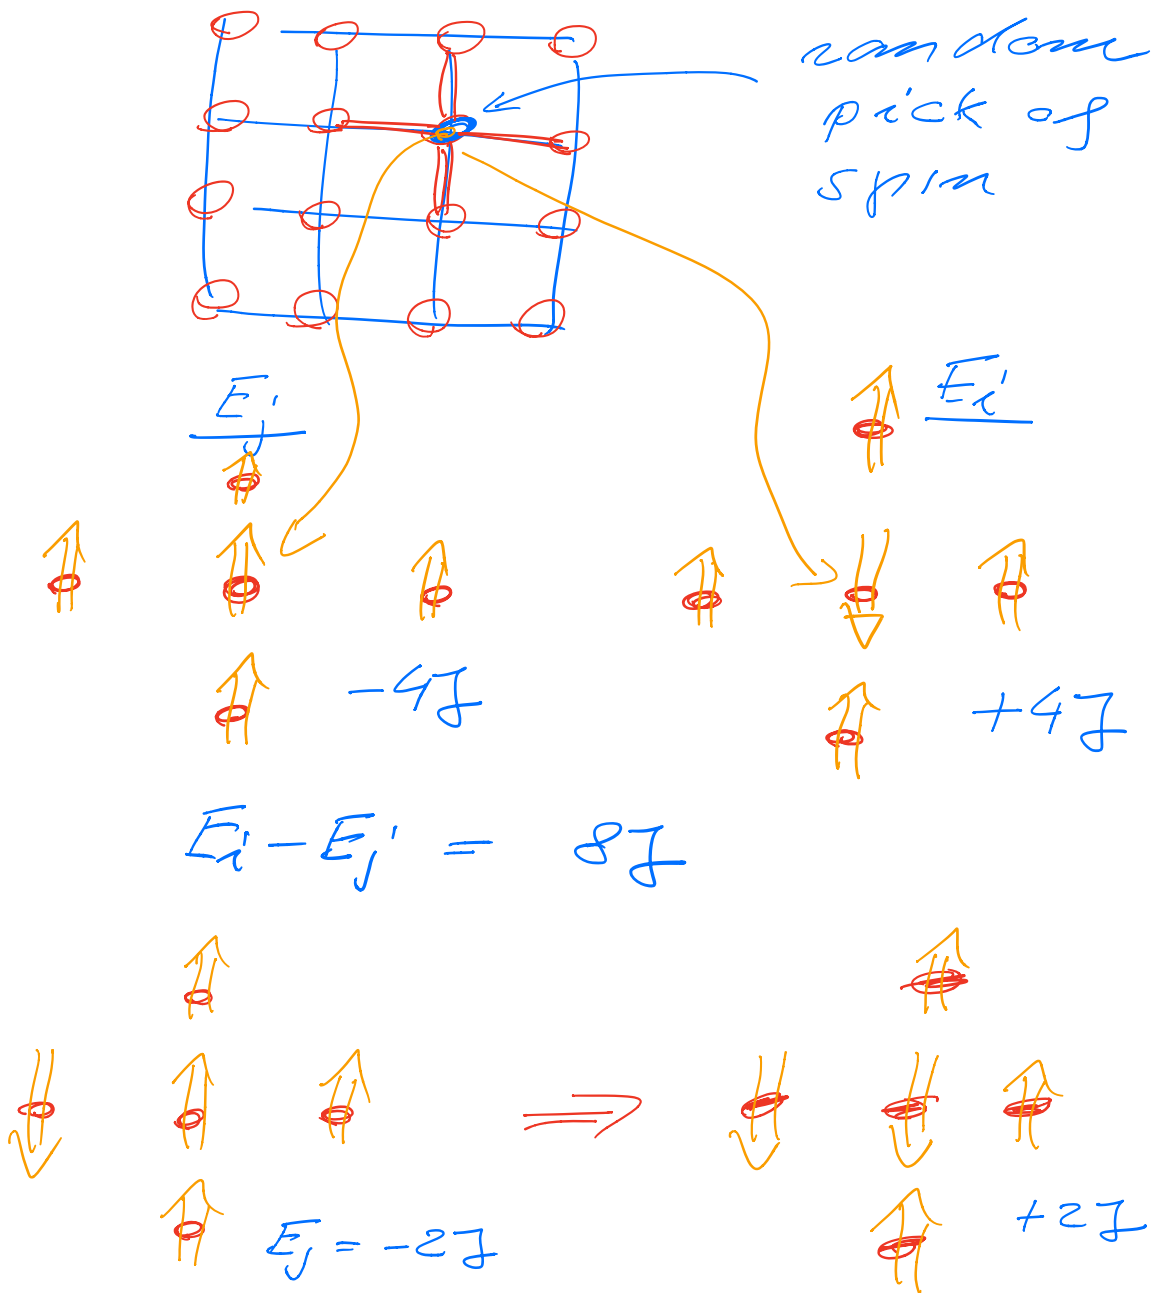 random
pick of
spin
Ej
Ei
-4J
+4J
Ei - Ej = 8J
Ej = -2J
+2J